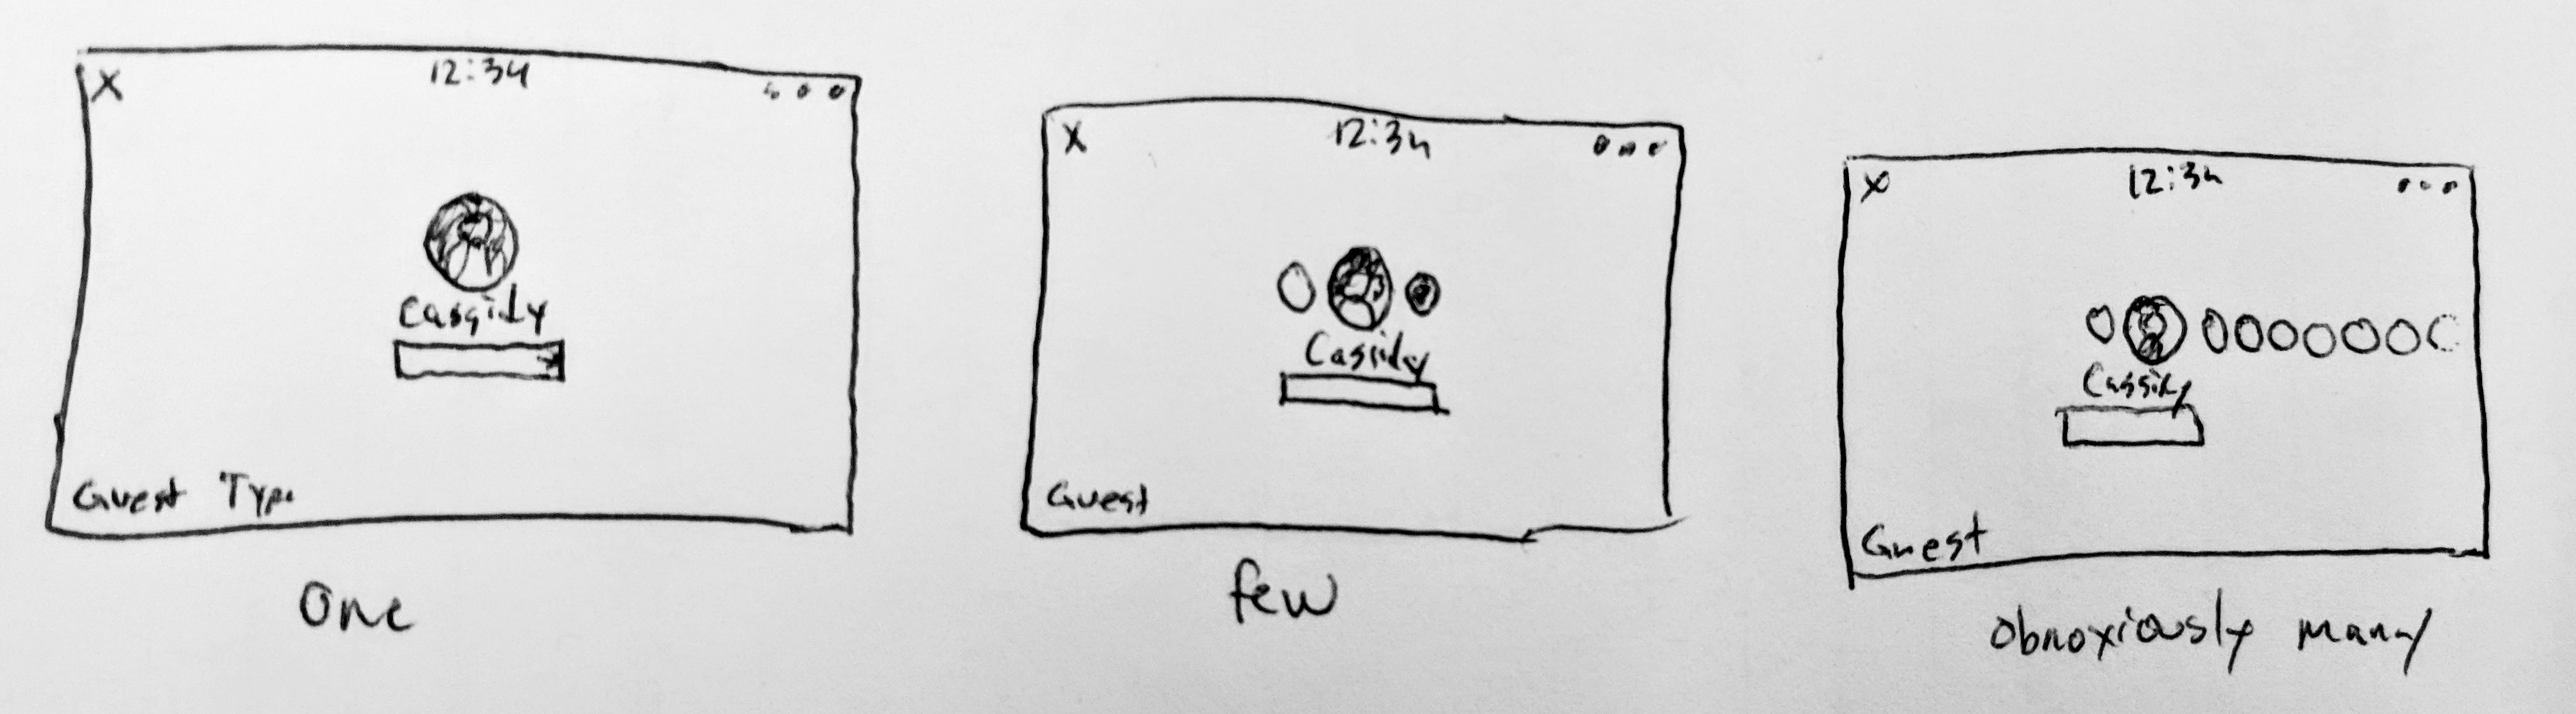 X 12:34
Cassidy
Guest Type
One
X 12:34
Cassidy
Guest
few
X 12:34
Cassidy
Guest
obnoxiously many